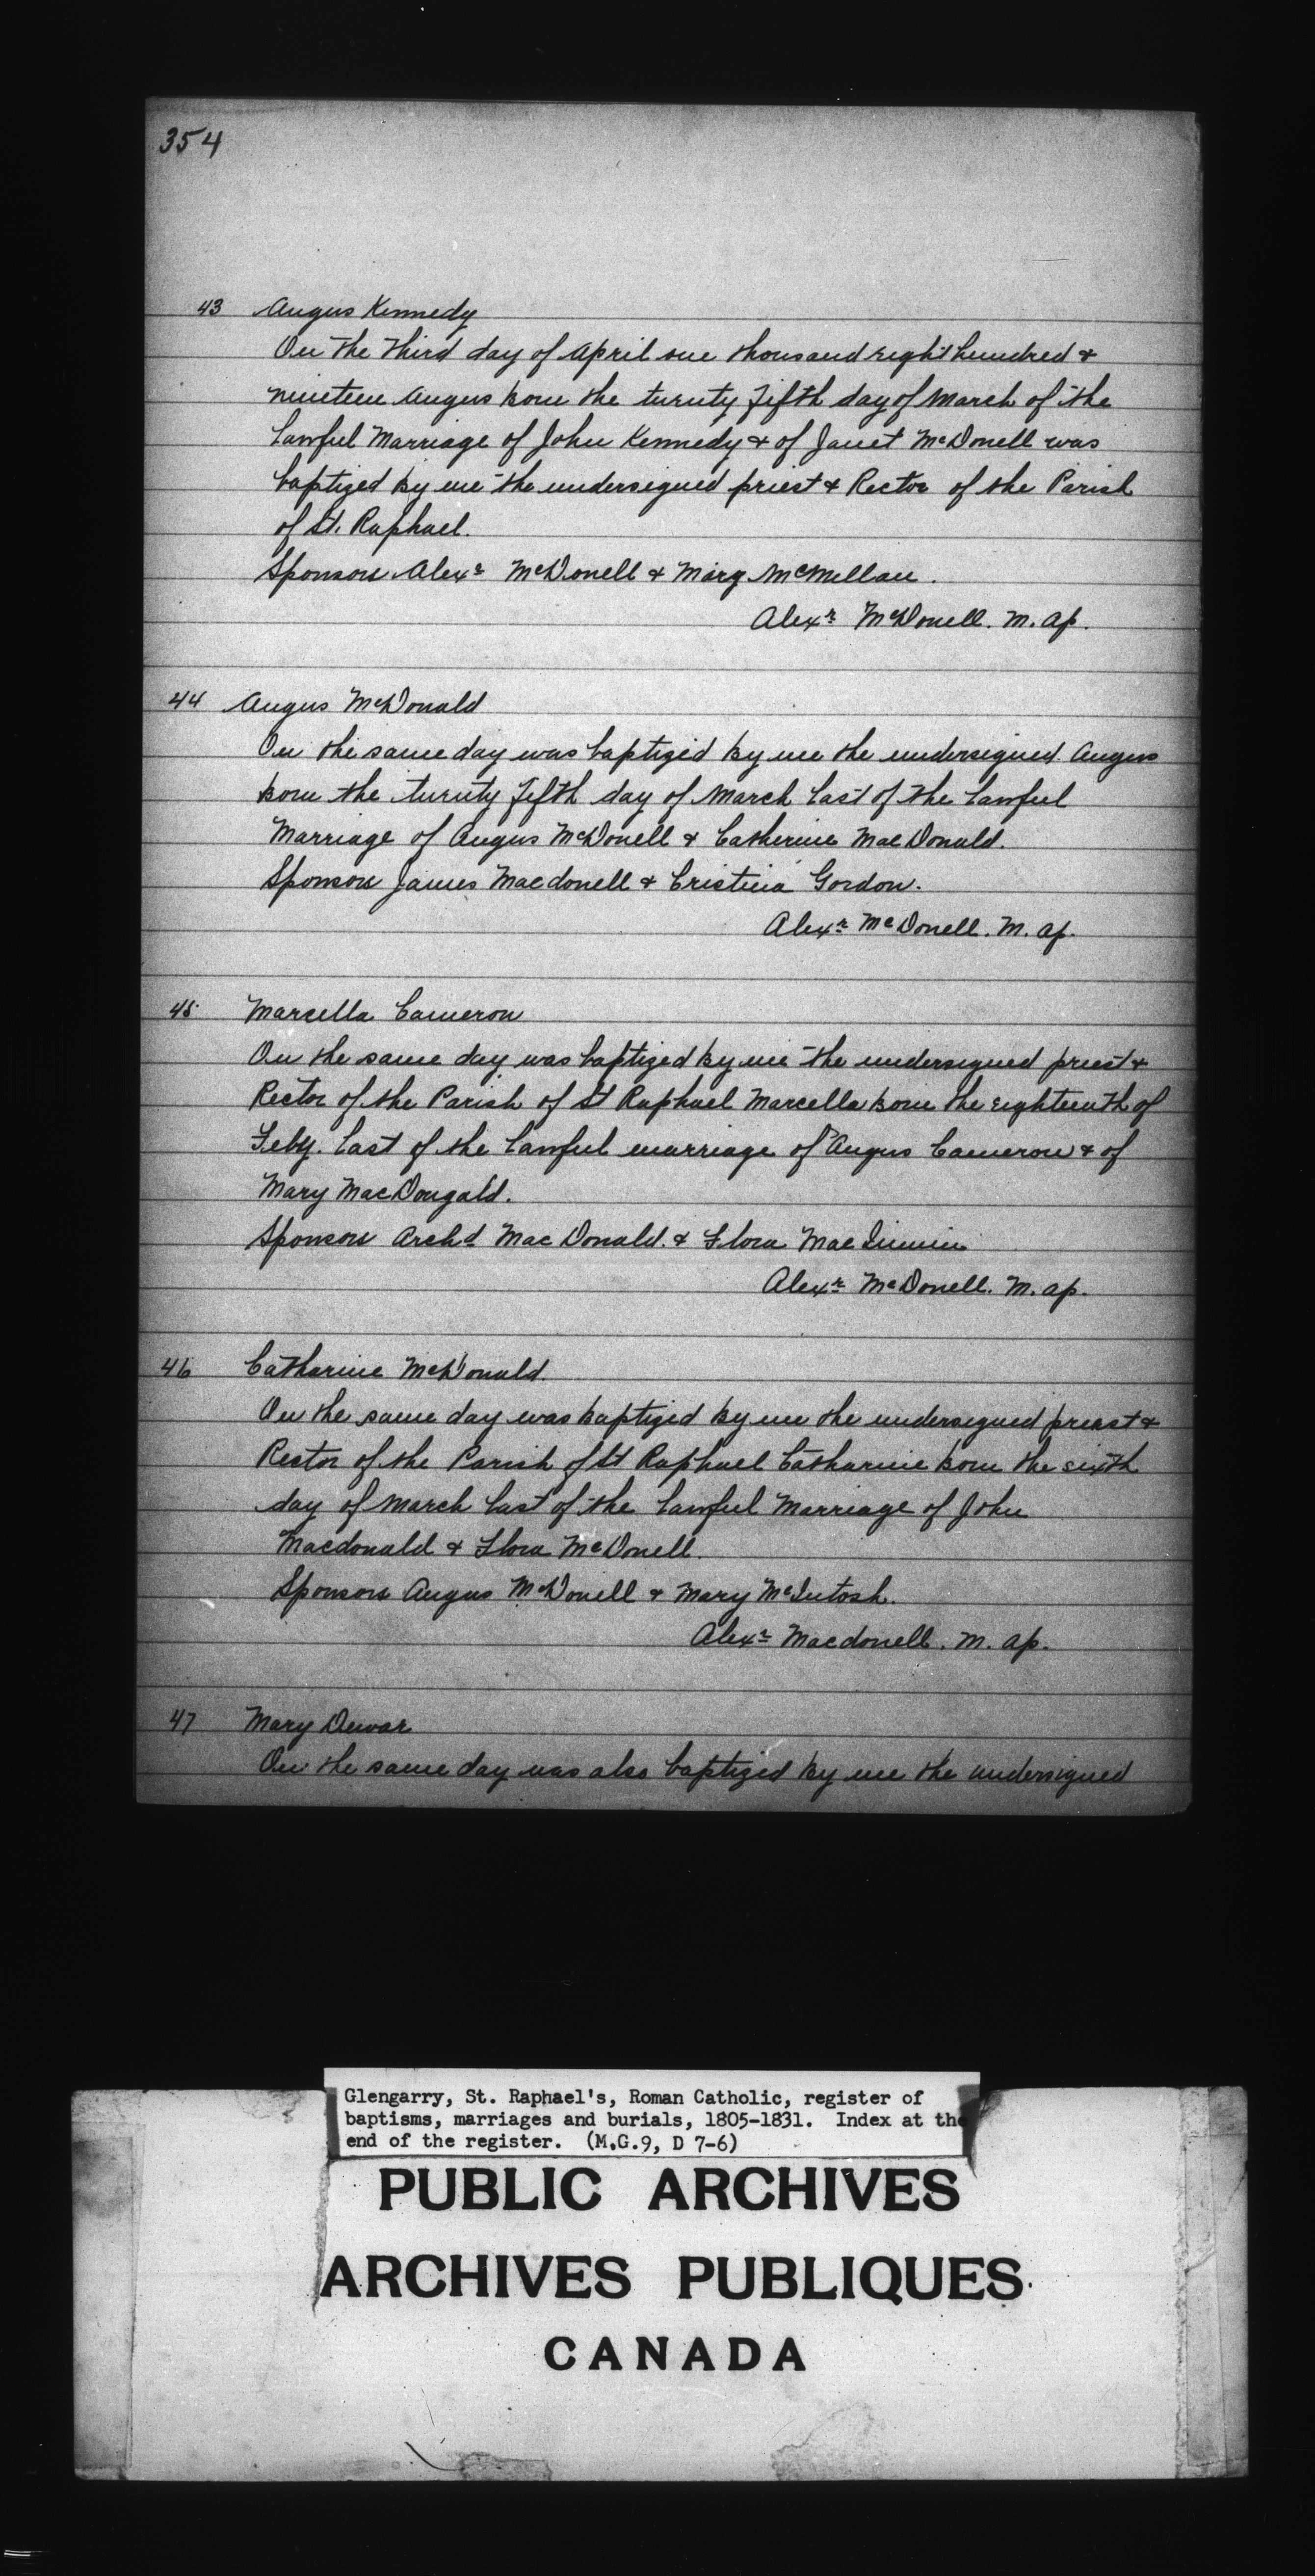 354
43 Angus Kennedy
On the third day of April one thousand eight hundred &
nineteen Angus born the twenty fifth day of March of the
lawful Marriage of John Kennedy & of Janet McDonell was
baptized by me the undersigned priest & Rector of the Parish
of St. Raphael.
Sponsors Alexr McDonell & Mary McMillan.
Alexr McDonell. M. Ap.
44 Angus McDonald
On the same day was baptized by me the undersigned Angus
born the twenty fifth day of March last of the lawful
Marriage of Angus McDonell & Catherine MacDonald.
Sponsors James Macdonell & Cristina Gordon.
Alexr McDonell. M. Ap.
45 Marcella Cameron
On the same day was baptized by me the undersigned priest &
Rector of the Parish of St Raphael Marcella born the eighteenth of
Feby. last of the lawful marriage of Angus Cameron & of
Mary MacDougald.
Sponsors Archd MacDonald. & Flora
Alexr McDonell. M. Ap.
46 Catharine McDonald.
On the same day was baptized by me the undersigned priest &
Rector of the Parish of St Raphael Catharine born the sixth
day of March last of the lawful Marriage of John
Macdonald & Flora McDonell.
Sponsors Angus McDonell & Mary McIntosh.
Alexr Macdonell. M. Ap.
47 Mary Dewar
On the same day was also baptized by me the undersigned
Glengarry, St. Raphael's, Roman Catholic, register of
baptisms, marriages and burials, 1805-1831. Index at the
end of the register. (M.G.9, D 7-6)
PUBLIC ARCHIVES
ARCHIVES PUBLIQUES
CANADA